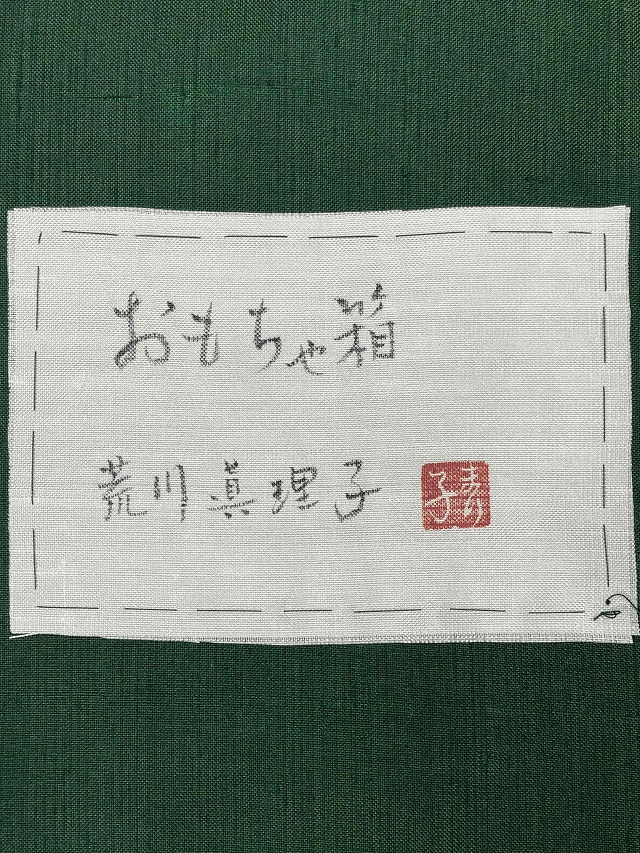 おもちゃ箱
荒川眞理子